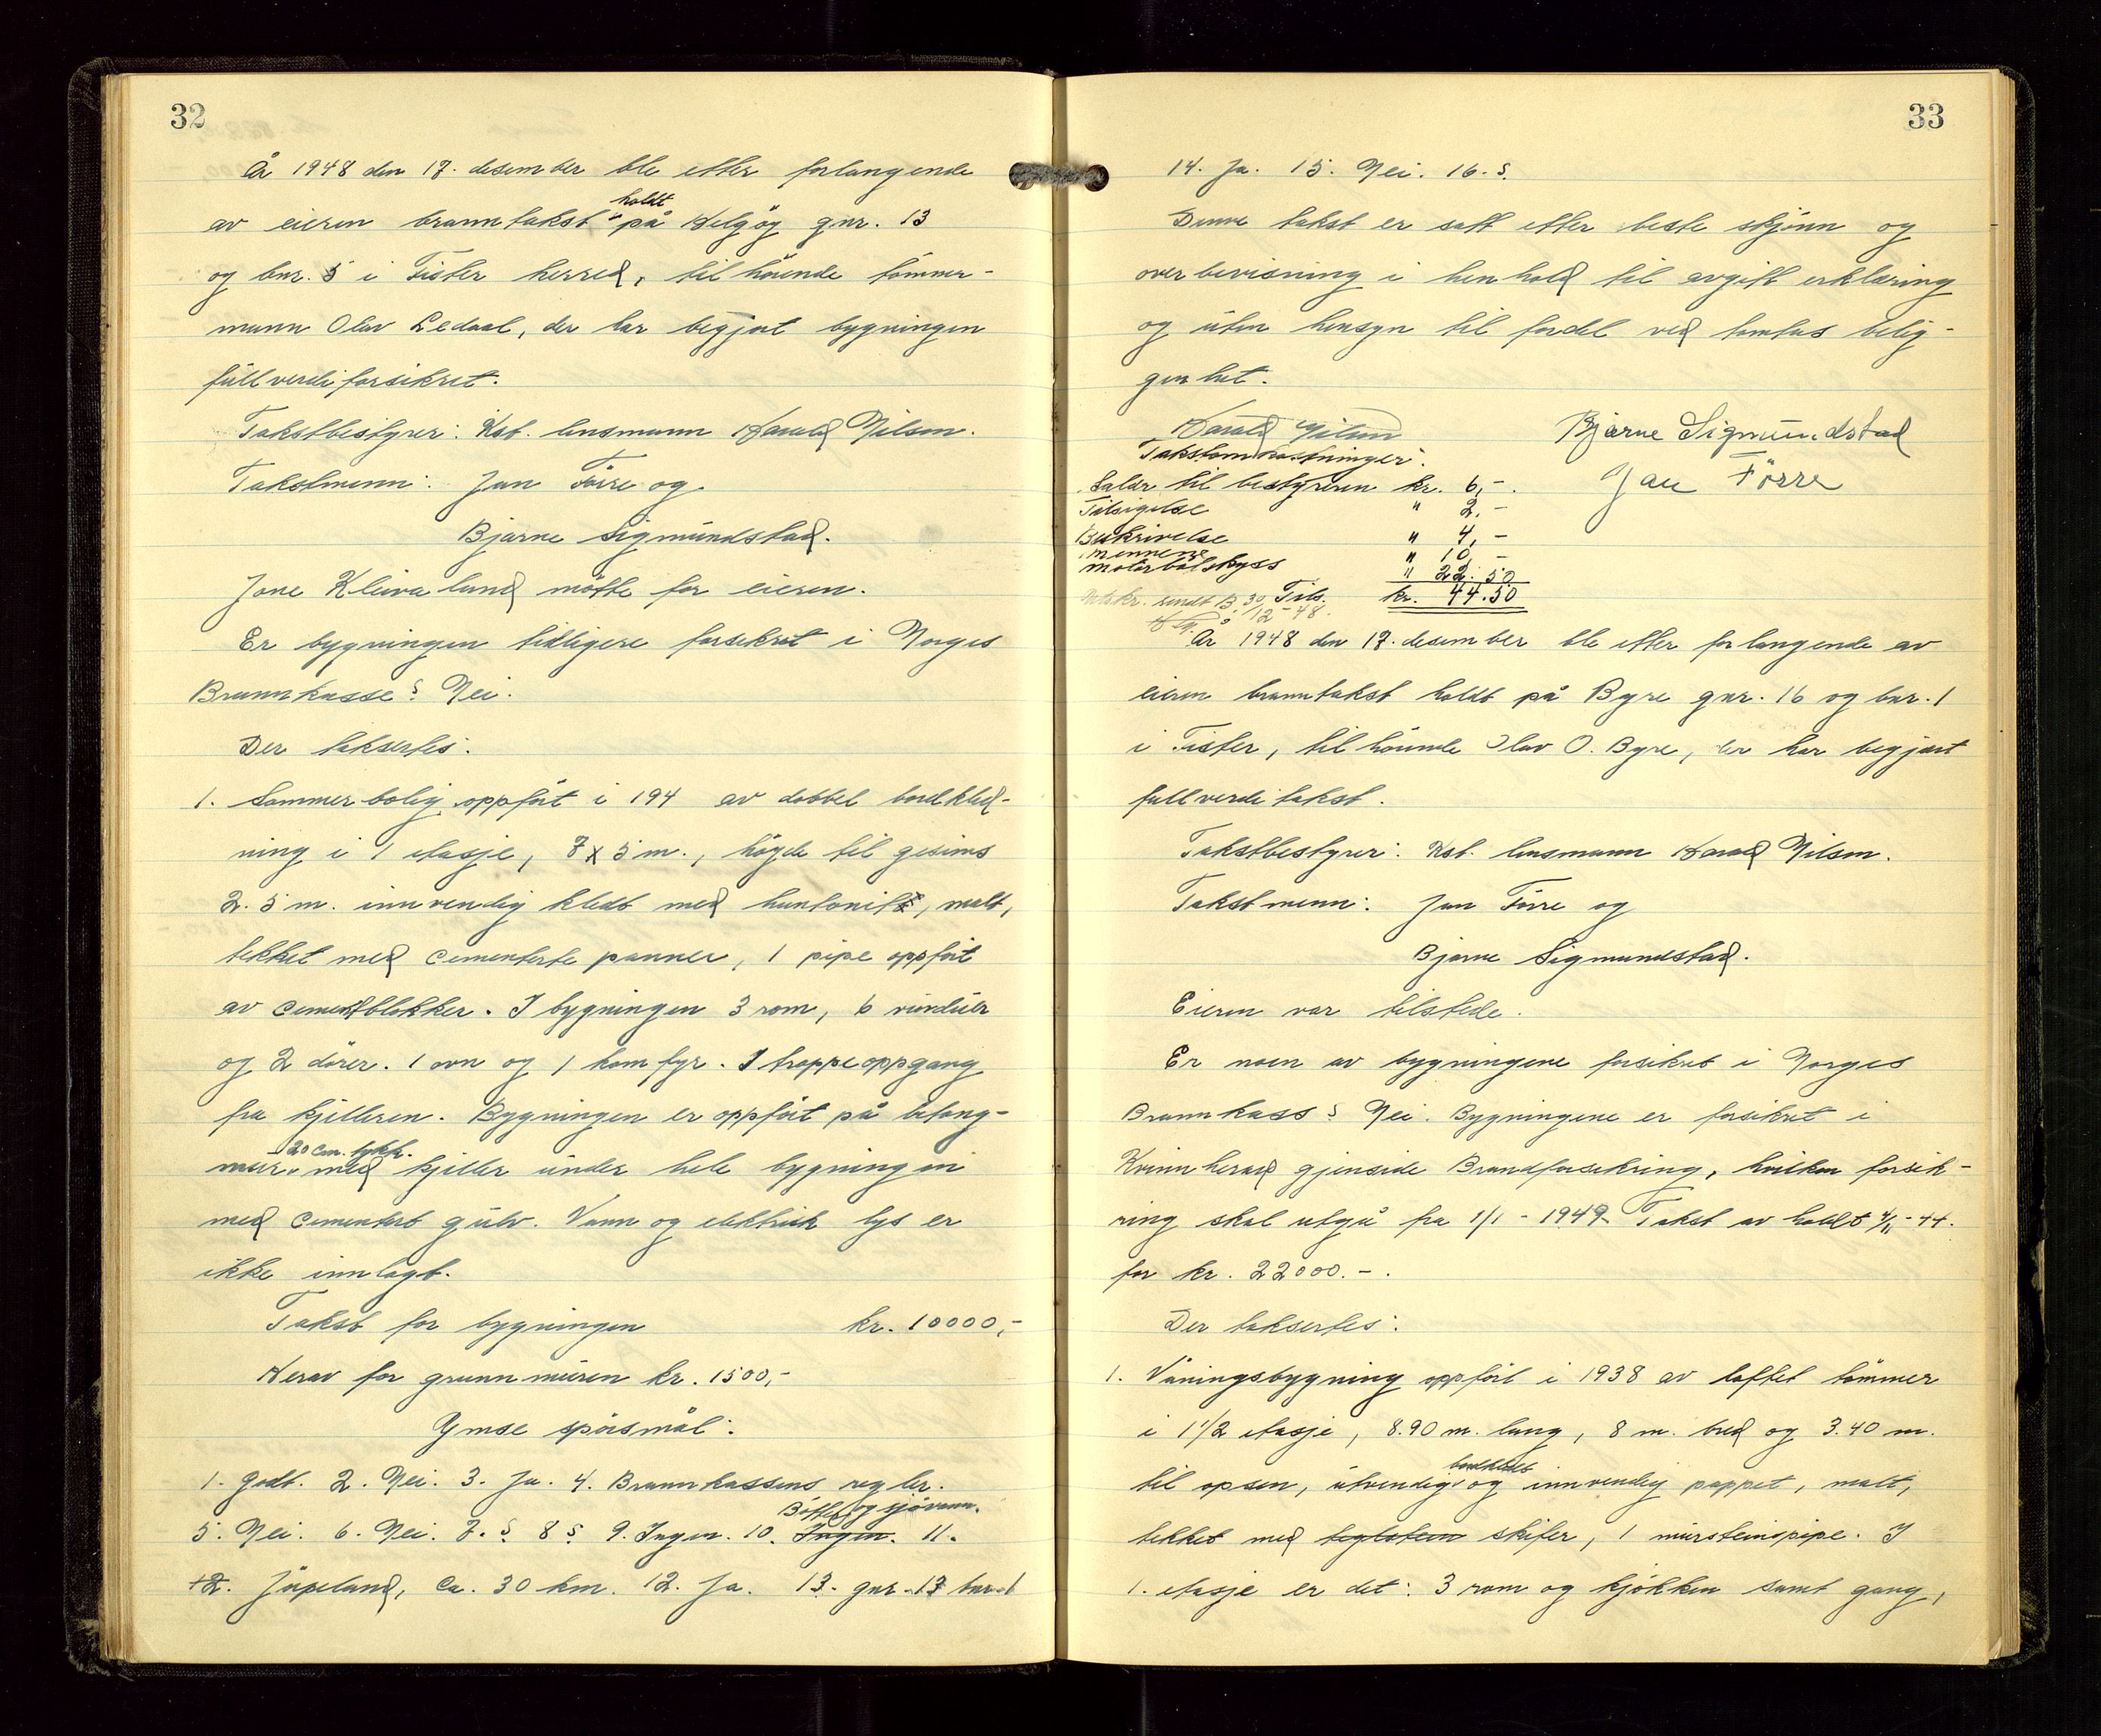 32
År 1948 den 17. desember ble etter forlangende
av eieren branntakst holdt på Helgöy gnr. 13
og bnr. 5 i Fister herred, tilhörende tömmer-
mann Olav Ledaal, der har begjært bygningen
fullverdiforsikret.
Takstbestyrer: Kst. lensmann Harald Nilsen.
Takstmenn: Jan Förre og
Bjarne Sigmundstad.
Jone Kleivaland mötte for eieren.
Er bygningen tidligere forsikret i Norges
Brannkasse? Nei.
Der taksertes:
1. Sommerbolig oppfört i 194 av dobbel bordkled-
ning i 1 etasje, 7 x 5 m., högde til gesims
2.5 m. innvendig kledt med huntonit, malt,
tekket med cementerte panner, 1 pipe oppfört
av cementblokker. I bygningen 3 rom, 6 vinduer
og 2 dörer. 1 ovn og 1 komfyr. 1 trappeoppgang
fra kjelleren. Bygningen er oppfört på betong-
mur, 20 cm. tykk. med kjeller under hele bygningen
med cementert gulv. Vann og elektrisk lys er
ikke innlagt.
Takst for bygningen kr. 10000,-
Herav for grunnmuren kr. 1500,-
Ymse spörsmål:
1. Godt. 2. Nei. 3. Ja. 4. Brannkassens regler.
5. Nei. 6. Nei. 7. ? 8 ? 9. Ingen. 10. Ingen. Bötter og sjövann. 11.
12. Jöpeland, ca. 30 km. 12. Ja. 13. gnr. 13 bnr. 1
33
14. Ja. 15. Nei. 16. ?
Denne takst er satt etter beste skjönn og
overbevisning i henhold til avgitt erklæring
og uten hensyn til fordel ved tomtas belig-
genhet.
Harald Nilsen Bjarne Sigmundstad
Jan Förre
Takstomkostninger:
Salær til bestyreren kr. 6,-.
Tilsigelse " 2.-
Beskrivelse " 4,-
Mennene " 10,-
Motorbåtskyss " 22.50
Tils. kr. 44.50
Utskr. sendt B. 30/12-48.
År 1948 den 17. desember ble etter forlangende av
eieren branntakst holdt på Byre gnr. 16 og bnr. 1
i Fister, tilhörende Olav O. Byre, der har begjært
fullverditakst.
Takstbestyrer: Kst. lensmann Harald Nilsen.
Takstmenn: Jan Förre og
Bjarne Sigmundstad.
Eieren var tilstede.
Er noen av bygningene forsikret i Norges
Brannkass? Nei. Bygningene er forsikret i
Kvinnherad gjenside Brandforsikring, hvilken forsik-
ring skal utgå fra 1/1-1949. Takst av holdt 4/11-44.
for kr. 22000.-.
Der taksertes:
1. Våningsbygning oppfört i 1938 av laftet tömmer
i 1 1/2 etasje, 8.90 m. lang, 8 m. bred og 3.40 m.
til opsen, utvendig bordkledt og innvendig pappet, malt,
tekket med teglstein skifer, 1 mursteinspipe. I
1. etasje er det: 3 rom og kjökken samt gang,